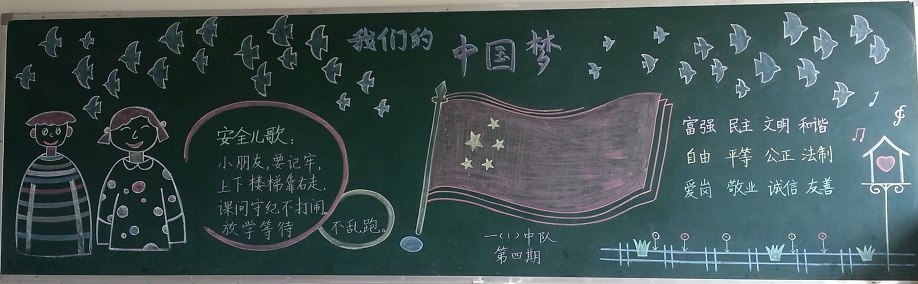 我们的
中国梦
安全儿歌：
小朋友，要记牢，
上下楼梯靠右走，
课间守纪不打闹，
放学等待
不乱跑。
一（1）中队
第四期
富强 民主 文明 和谐
自由 平等 公正 法制
爱岗 敬业 诚信 友善